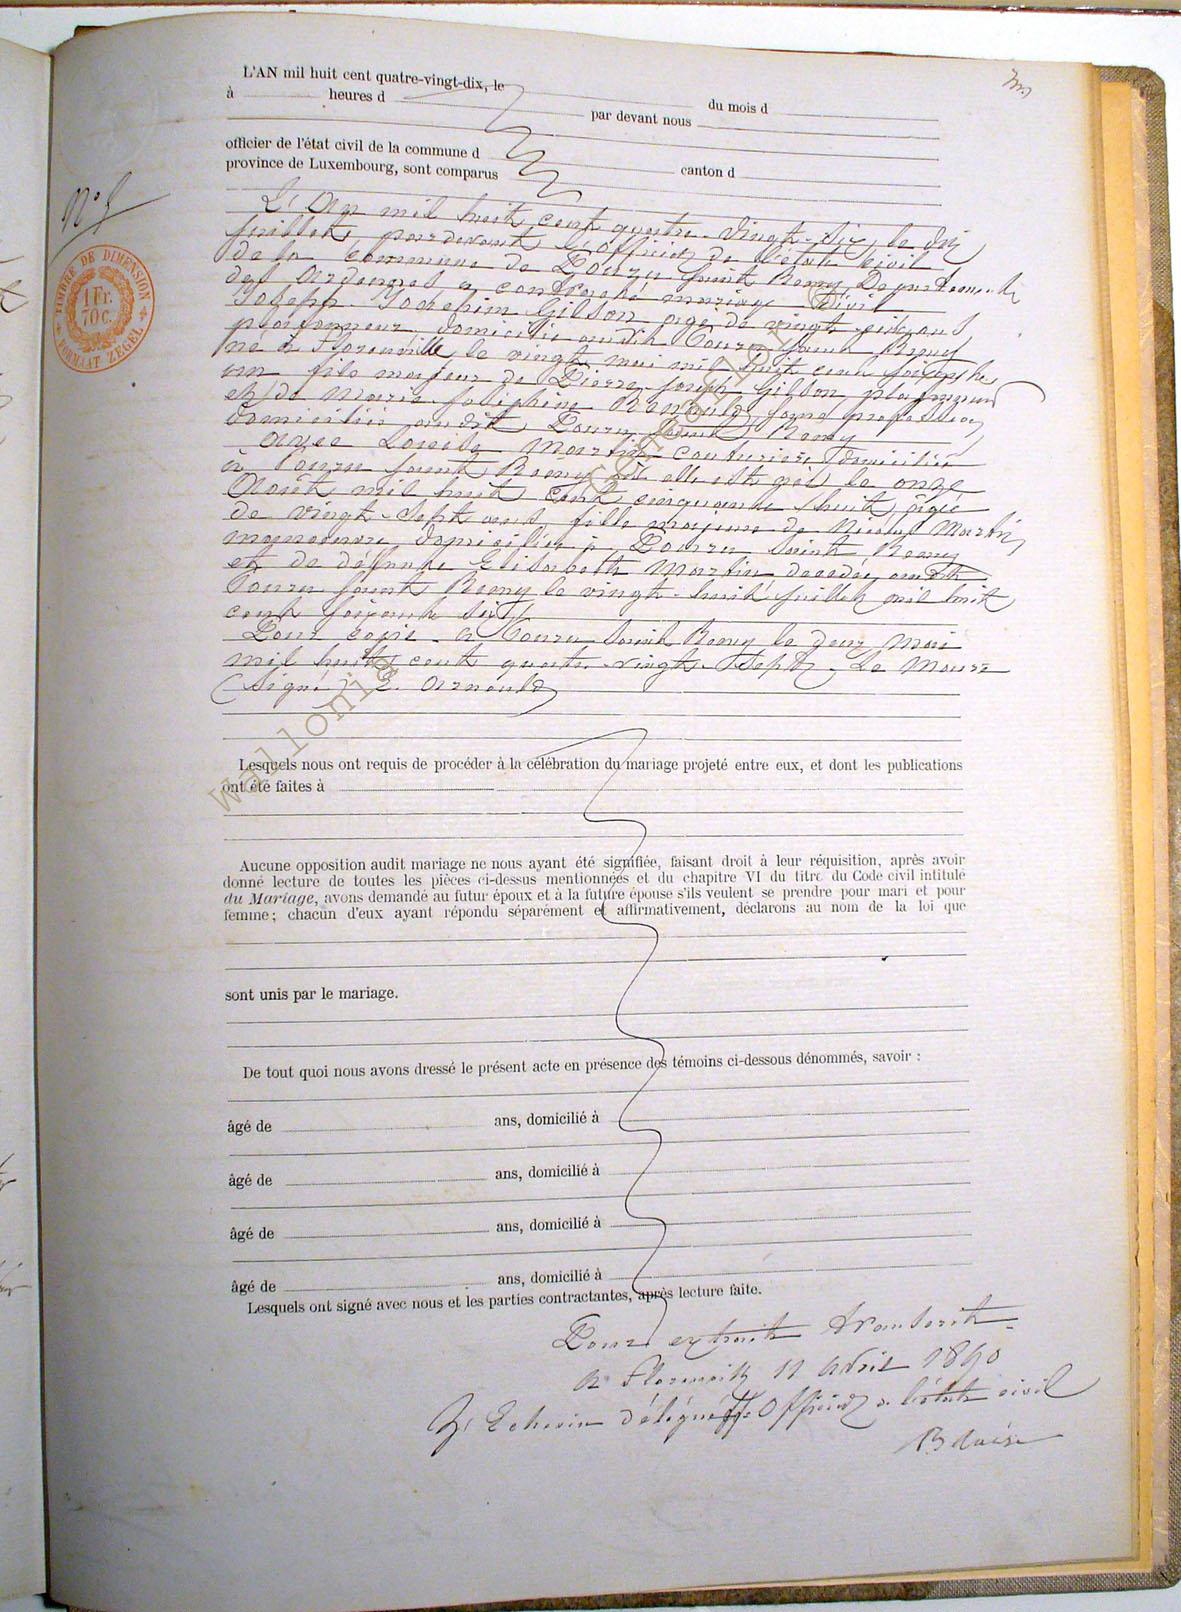 L'AN mil huit cent quatre-vingt-dix, le du mois d
à heures d par devant nous
officier de l'état civil de la commune d canton d
province de Luxembourg, sont comparus
N° 5
TIMBRE DE DIMENSION
1 Fr. 70 c.
FORMAAT ZEGEL
L'An mil huit cent quatre-vingt-six, le dix
juillet, pardevant l'officier de l'état civil
de la commune de Pouru Saint Remy, Département
des Ardennes, a contracté mariage civil
Joseph Gilson agé de vingt-six ans
plafonneur domicilié audit Pouru Saint Remy
né à Florenville le vingt mai mil huit cent soixante
un fils majeur de Pierre Joseph Gilson, plafonneur
et de Marie Joséphine Renauld, sans profession
domiciliés audit Pouru Saint Remy
avec Louise Martin couturière domiciliée
à Pouru Saint Remy où elle est née le onze
Août mil huit cent cinquante huit, âgée
de vingt-sept ans, fille majeure de Nicolas Martin
manoeuvre, domicilié à Pouru Saint Remy
et de défunte Elisabeth Martin décédée audit
Pouru Saint Remy le vingt-huit juillet mil huit
cent soixante
Pour copie à Pouru Saint Remy le deux Mai
mil huit cent quatre-vingt-sept. Le Maire
(Signé) E. Arnould
wallonie
Lesquels nous ont requis de procéder à la célébration du mariage projeté entre eux, et dont les publications
ont été faites à
Aucune opposition audit mariage ne nous ayant été signifiée, faisant droit à leur réquisition, après avoir
donné lecture de toutes les pièces ci-dessus mentionnées et du chapitre VI du titre du Code civil intitulé
du Mariage, avons demandé au futur époux et à la future épouse s'ils veulent se prendre pour mari et pour
femme; chacun d'eux ayant répondu séparément et affirmativement, déclarons au nom de la loi que
sont unis par le mariage.
De tout quoi nous avons dressé le présent acte en présence des témoins ci-dessous dénommés, savoir :
âgé de ans, domicilié à
âgé de ans, domicilié à
âgé de ans, domicilié à
âgé de ans, domicilié à
Lesquels ont signé avec nous et les parties contractantes, après lecture faite.
Pour extrait transcrit
à Florenville 11 Avril 1890
L'Echevin délégué ff. Officier de l'état civil